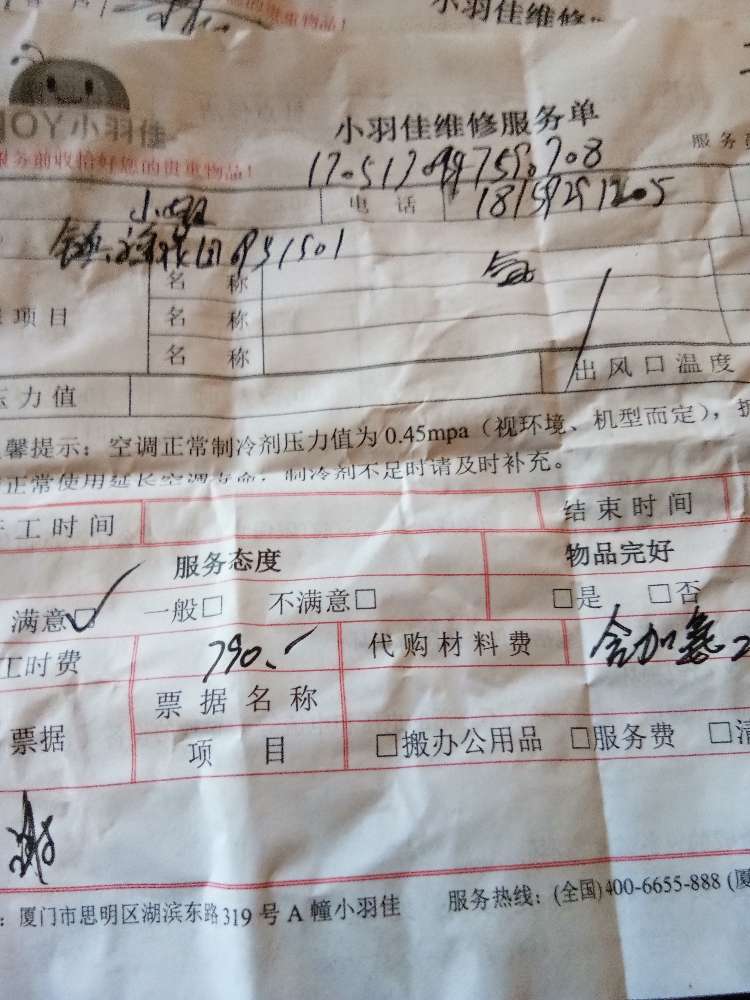 的贵重物品！
小羽佳维修
JOY小羽佳
小羽佳维修服务单
服务前收拾好您的贵重物品！
服务
电话
18159291205
名称
名称
项目
名称
名称
出风口温度
压力值
馨提示：空调正常制冷剂压力值为0.45mpa（视环境、机型而定），
正常使用延长空调寿命，制冷剂不足时请及时补充。
工时间
结束时间
服务态度
物品完好
满意□✓ 一般□ 不满意□
□是 □否
工时费
790.-
代购材料费
含加氨
票据
票据名称
项目
□搬办公用品 □服务费 □清
：厦门市思明区湖滨东路319号A幢小羽佳
服务热线：(全国)400-6655-888 (厦